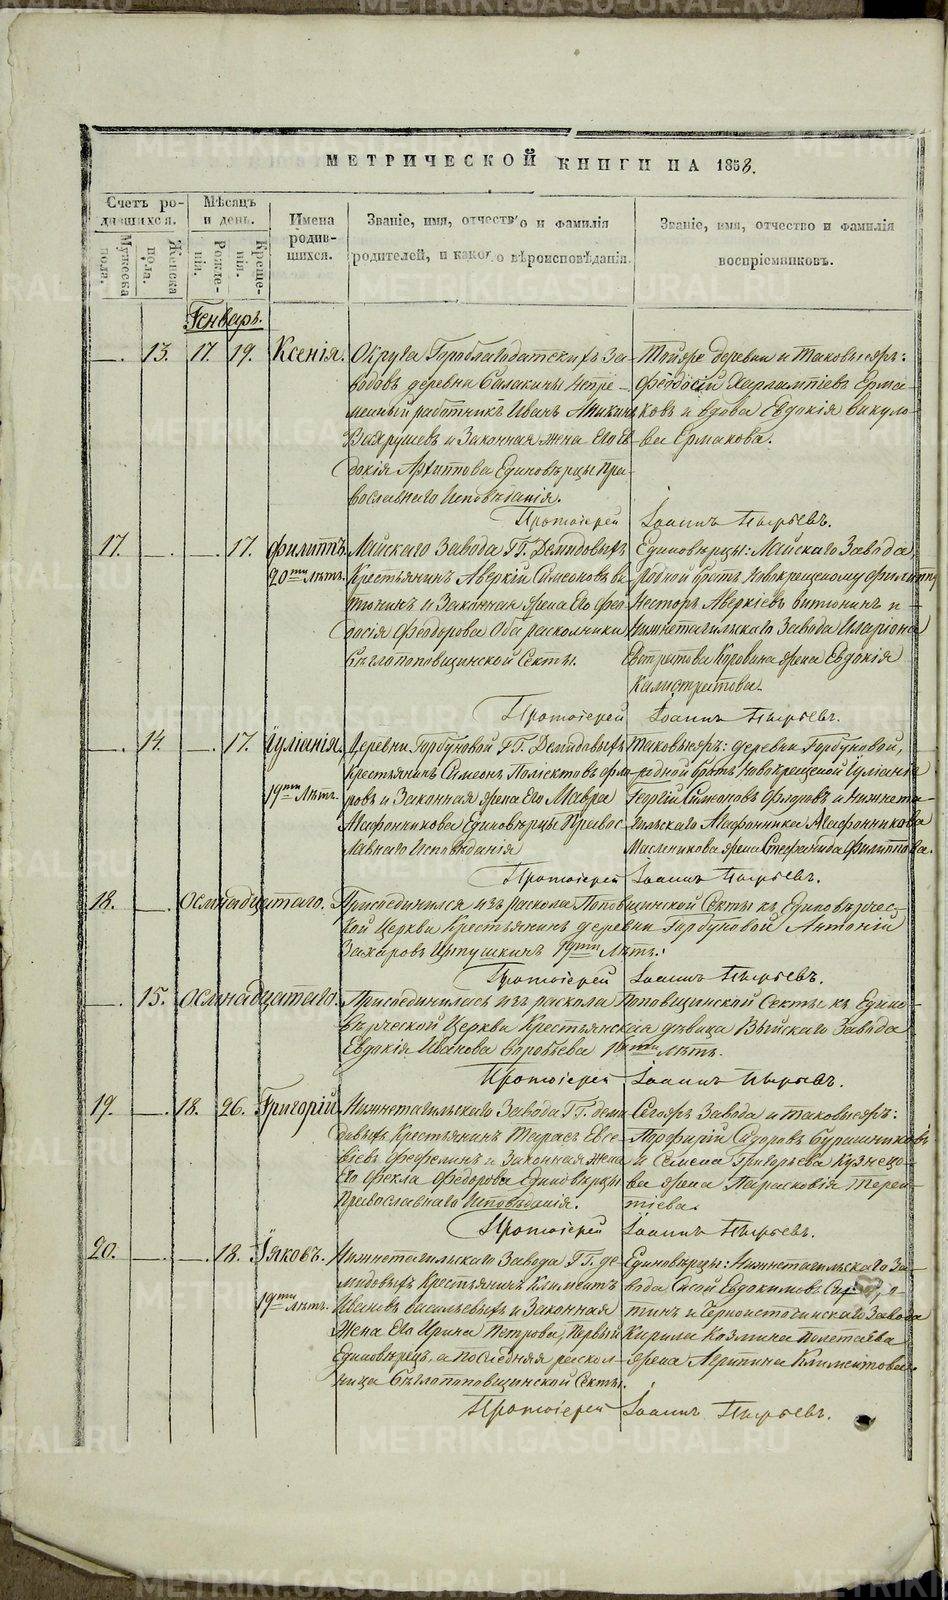 МЕТРИЧЕСКОЙ КНИГИ НА 1858.
Счетъ ро-
дившихся.
Мужеска пола.
Женска пола.
Мѣсяцъ
и день.
Рожде-
нія.
Креще-
нія.
Имена
родив-
шихся.
Званіе, имя, отчество и фамилія
родителей, и какого вѣроисповѣданія.
Званіе, имя, отчество и фамилія
воспріемниковъ.
Генварь.
13. 17. 19. Ксенія.
Округа Гороблагодатскихъ За-
водовъ деревни непре-
менный работникъ Иванъ Аникинъ
Вахрушевъ и Законная жена Его Ев
докія Архиппова Единовѣрцы Пра-
вославнаго Исповѣданія.
Тойже деревни и таковыежъ:
Феодосій Харлампіевъ Ерма-
ковъ и вдова Евдокія Викуло-
ва Ермакова.
Протоіерей Іоаннъ Пырьевъ.
17. 17. Филиппъ.
20ти лѣтъ.
Завода ГГ. Демидовыхъ
Крестьянинъ Аверкій Симеоновъ Ви
тюнинъ и Законная жена Его Фео
досія Феодорова Оба раскольники
Бѣглопоповщинской Секты.
Единовѣрцы: Завода
родной братъ Новокрещеному Филиппу
Несторъ Аверкіевъ Витюнинъ и
Нижнетагильскаго Завода Иларіона
Евстратова Коровина жена Евдокія
Калистратова.
Протоіерей Іоаннъ Пырьевъ.
14. 17. Іуліанія.
19ти Лѣтъ.
Деревни Горбуновой ГГ. Демидовыхъ
Крестьянинъ Симеонъ Поліектовъ Фло
ровъ и Законная жена Его Мавра
Агафонникова Единовѣрцы Правос-
лавнаго Исповѣданія
Таковыежъ: деревни Горбуновой,
родной братъ Новокрещеной Іуліаніи
Георгій Симеоновъ Флоровъ и Нижнета-
гильскаго Агафонника Агафонникова
Масленикова жена Стефанида Филиппова.
Протоіерей Іоаннъ Пырьевъ.
18. Осмнадцатаго. Присоединился изъ раскола Поповщинской Секты къ Единовѣрчес-
кой Церкви Крестьянинъ деревни Горбуновой Антоній
Захаровъ 19ти Лѣтъ.
Протоіерей Іоаннъ Пырьевъ.
15. Осмнадцатаго. Присоединилась изъ раскола Поповщинской Секты къ Едино-
вѣрческой Церкви Крестьянская дѣвица Выйскаго Завода
Евдокія Иванова Воробьева лѣтъ.
Протоіерей Іоаннъ Пырьевъ.
19. 18. 26. Григорій.
Нижнетагильскаго Завода ГГ. Деми
довыхъ Крестьянинъ Тарасъ Евсе-
віевъ Фефелинъ и Законная жена
Его Фекла Федорова Единовѣрцы
Православнаго Исповѣданія.
Сегожъ Завода и таковыежъ:
Порфирій Сидоровъ
и Семена Григорьева Кузнецо-
ва жена Парасковія Терен-
тіева.
Протоіерей Іоаннъ Пырьевъ.
20. 18. Іяковъ.
19ти лѣтъ.
Нижнетагильскаго Завода ГГ. Де-
мидовыхъ Крестьянинъ Климентъ
Ивановъ Васильевыхъ и Законная
Жена Его Ирина Петрова, Первый
Единовѣрецъ, а последняя расколь-
ница Бѣглопоповщинской Секты.
Единовѣрцы: Нижнетагильскаго За-
вода Сисой Евдокимовъ
и Черноисточинскаго Завода
Кирила Козмина Полетаева
жена Агрипина Климентова.
Протоіерей Іоаннъ Пырьевъ.
METRIKI.GASO-URAL.RU